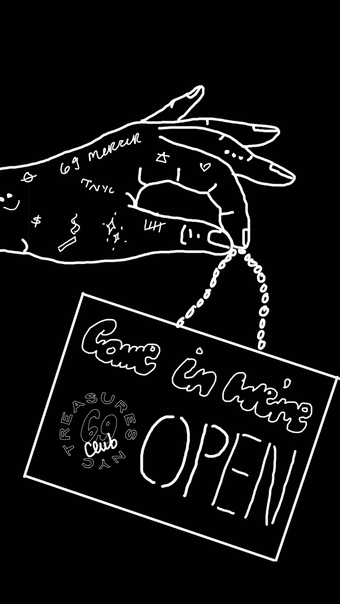 69 MERCER
TNYC
$
Come in we're
OPEN
TREASURES
69
Club
NYC